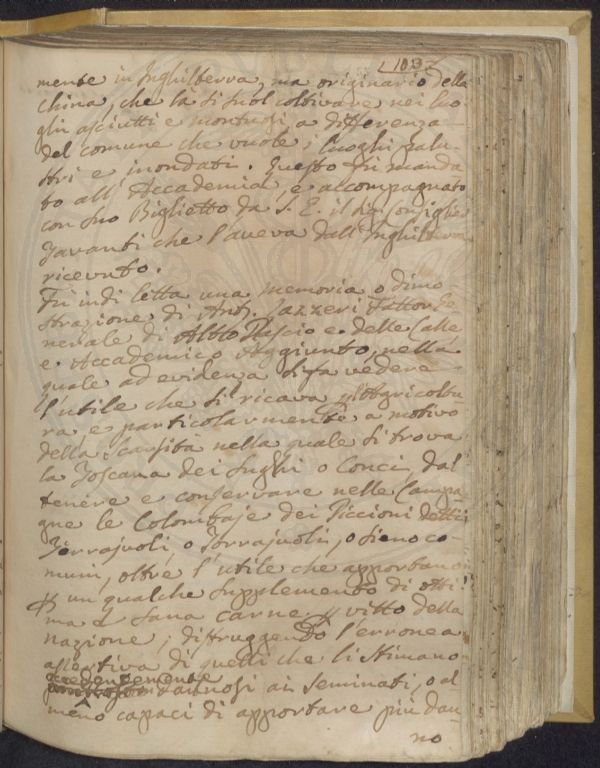 103
mente in Inghilterra, ma originario della
China, che là si suol coltivare nei luo-
ghi asciutti e montuosi a differenza
del comune che vuole i luoghi palu-
stri e inondati. Questo fù manda
to all' Accademia, e accompagnato
con suo Biglietto da S. E. il Sig. Consiglier
Tavanti che l'aveva dall' Inghilterra
ricevuto.
Fù indi letta una memoria o dimo-
strazione di Ant. Lazzeri Fattor Ge
nerale di Alto Pascio e delle Calle
e Accademico Aggiunto, nella
quale ad evidenza si fa vedere
l'utile che si ricava all'Agricoltu
ra, e particolarmente a motivo
della scarsità nella quale si trova
la Toscana dei Sughi o Conci, dal
tenere e conservare nelle Campa
gne le Colombaje dei Piccioni detti
Torrajuoli, o Torrajuoli, o sieno co-
muni, oltre l'utile che apportano
di un qualche supplemento di otti
ma e sana carne p vitto della
nazione, distruggendo l'erronea
assertiva di quelli che li stimano
eccedentemente
dannosi ai seminati, o al
meno capaci di apportare più dan-
no